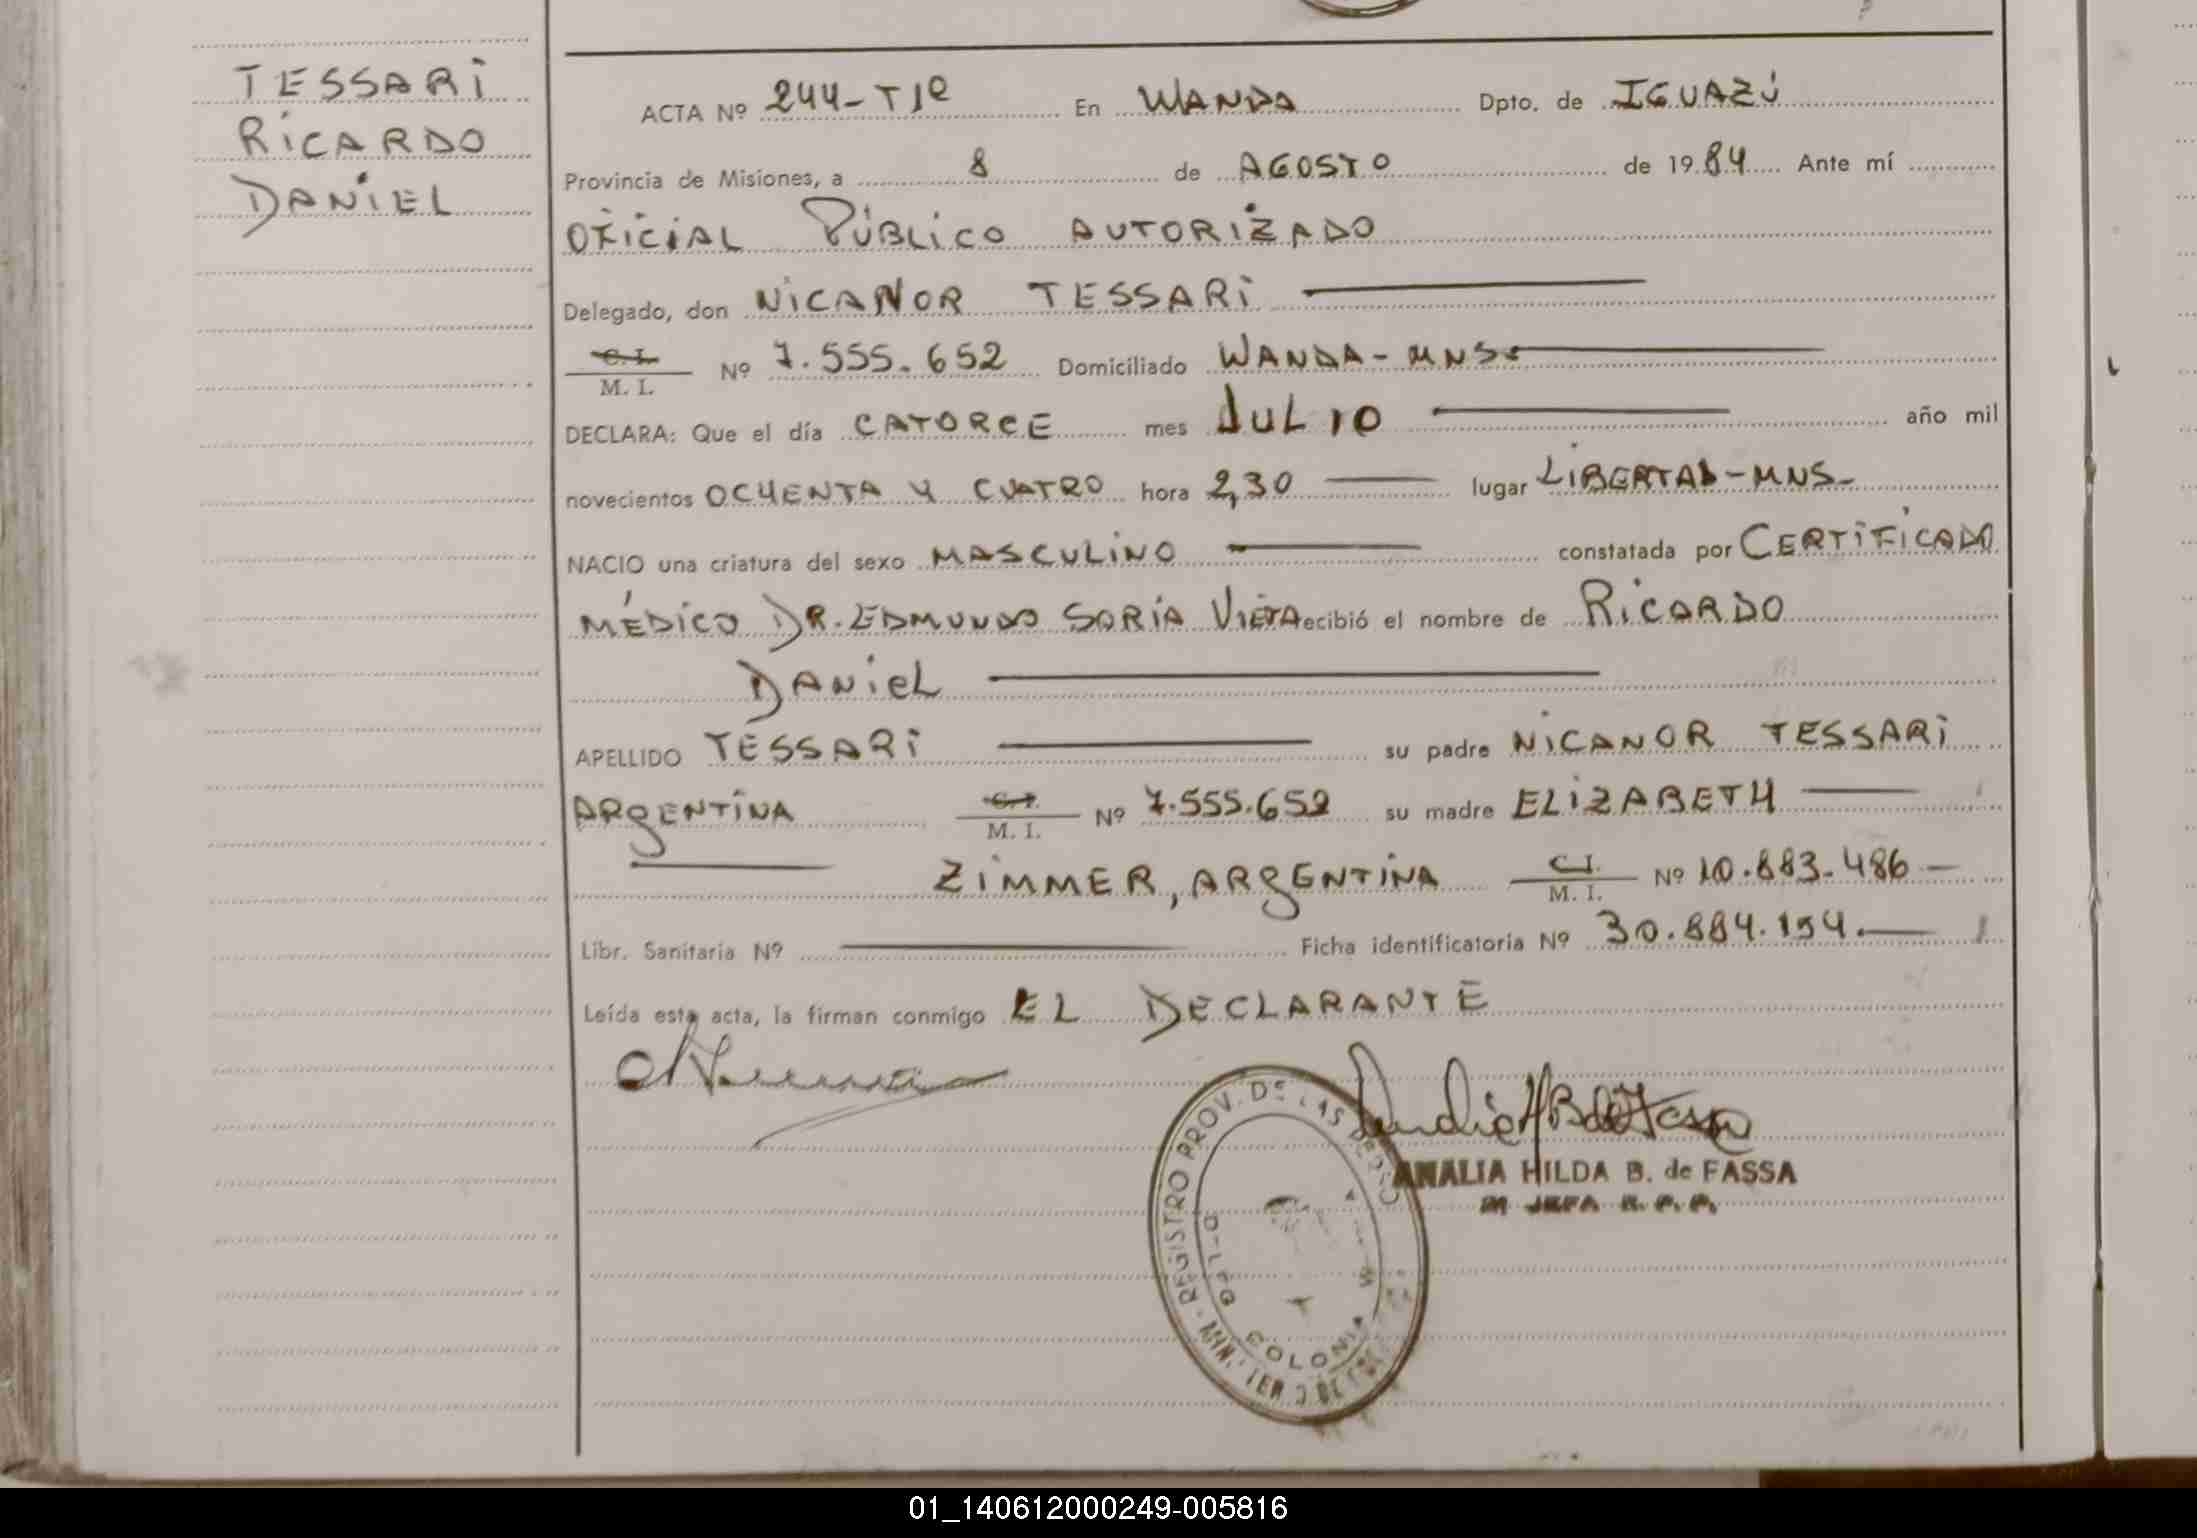 TESSARI
RICARDO
DANIEL
ACTA Nº 244-T1º En WANDA Dpto. de IGUAZÚ
Provincia de Misiones, a 8 de AGOSTO de 1984 Ante mí
OFICIAL PÚBLICO AUTORIZADO
Delegado, don NICANOR TESSARI
C. I.
M. I. Nº 7.555.652 Domiciliado WANDA-MNS.
DECLARA: Que el día CATORCE mes JULIO año mil
novecientos OCHENTA Y CUATRO hora 2,30 lugar LIBERTAD-MNS-
NACIO una criatura del sexo MASCULINO constatada por CERTIFICADO
MÉDICO DR. EDMUNDO SORIA VIETA ecibió el nombre de RICARDO
DANIEL
APELLIDO TESSARI su padre NICANOR TESSARI
ARGENTINA C. I.
M. I. Nº 7.555.652 su madre ELIZABETH
ZIMMER, ARGENTINA C. I.
M. I. Nº 10.883.486
Libr. Sanitaria Nº Ficha identificatoria Nº 30.884.154.
Leída esta acta, la firman conmigo EL DECLARANTE
REGISTRO PROV. DE LAS
COLONIA
ANALIA HILDA B. de FASSA
JEFA R. P. P.
01_140612000249-005816